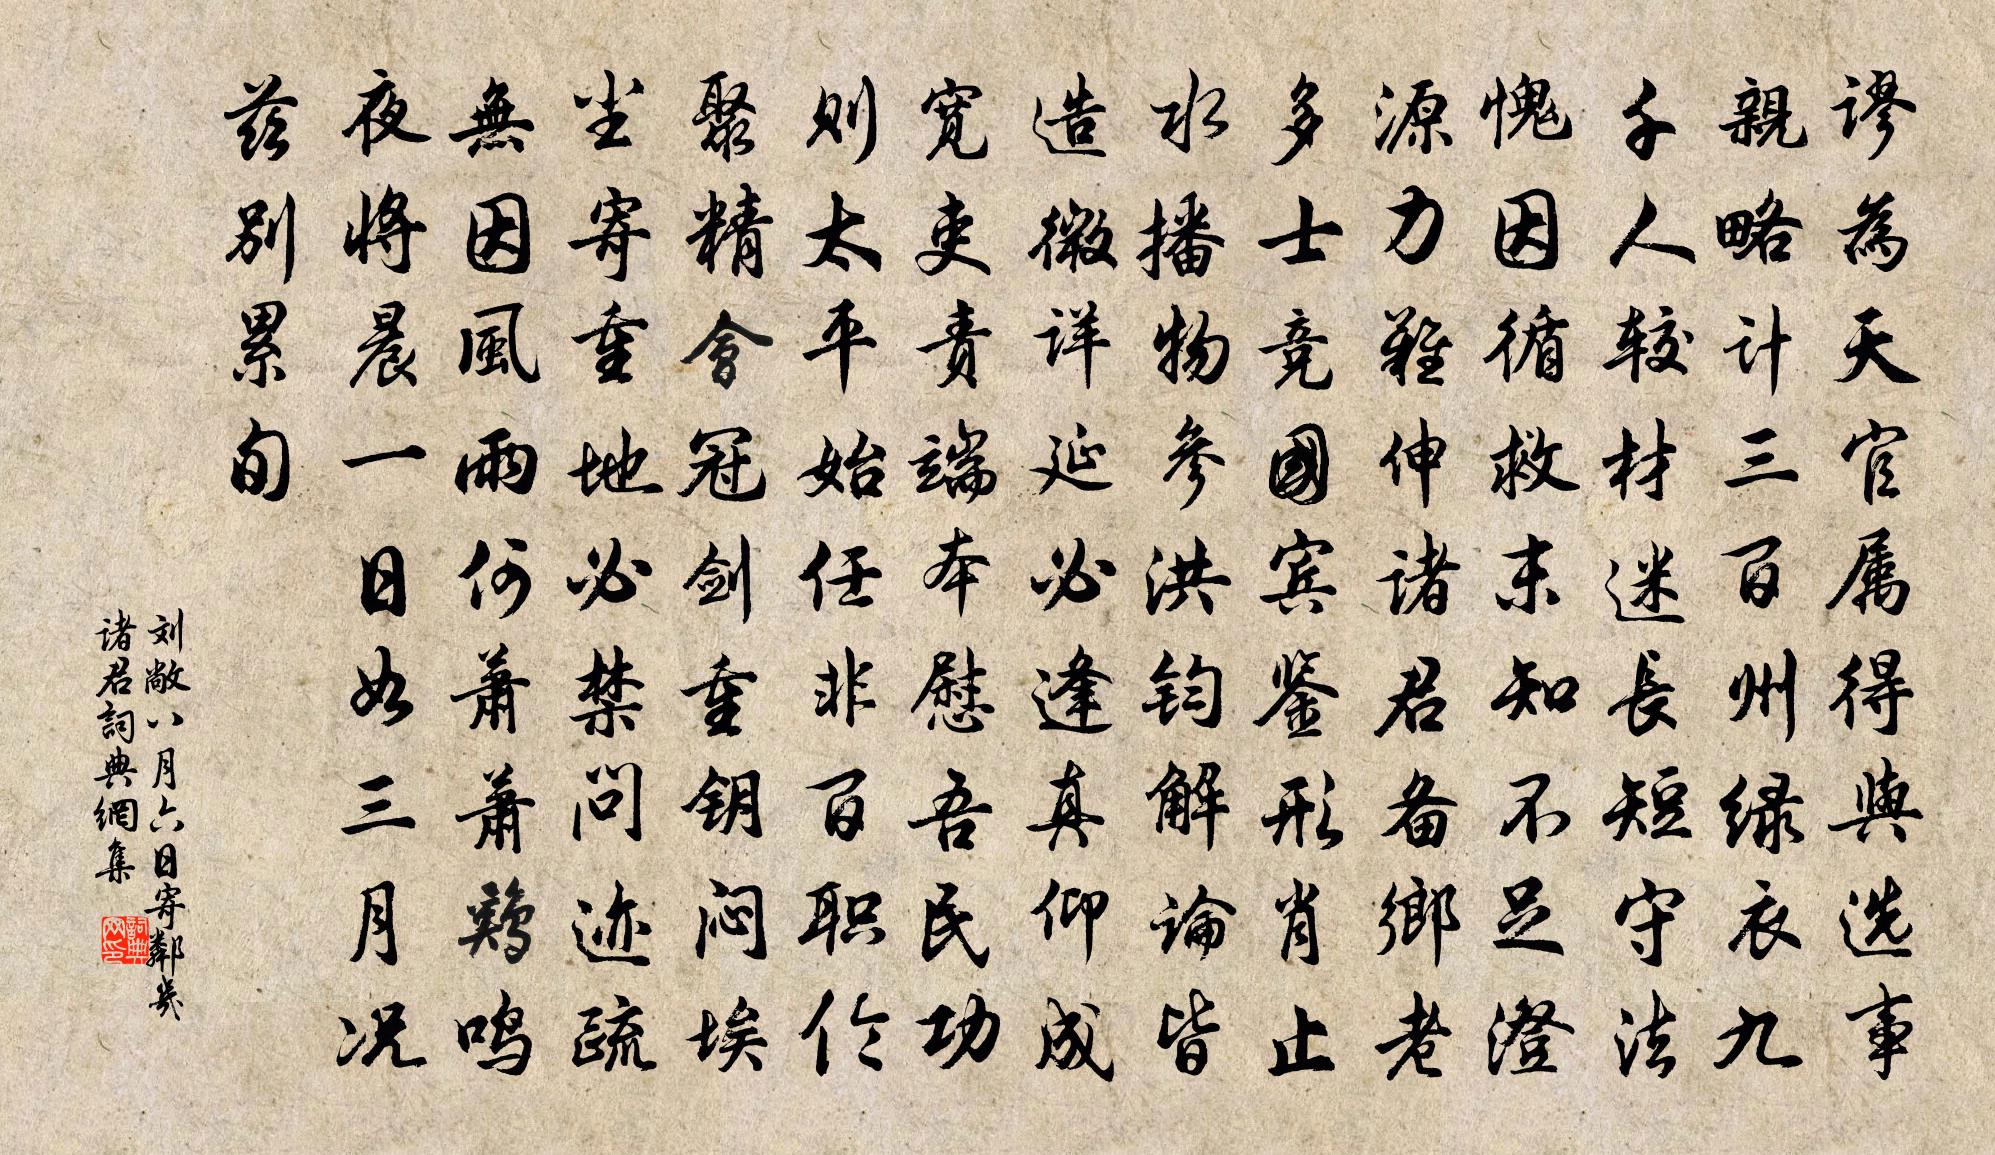 謬為天官属得與选事
親略计三百州绿衣九
千人较材迷長短守法
愧因循救末知不足澄
源力難伸诸君备鄉老
多士竞國宾鉴形肖止
水播物参洪钧解論皆
造微详延必逢真仰成
寛吏责端本慰吾民功
则太平始任非百职伦
聚精會冠剑重钥闷埃
坐寄重地必禁问迹疏
無因風雨何萧萧鷄鸣
夜将晨一日如三月况
兹别累旬
刘敞八月六日寄鄰幾
诸君詞典網集
詞典网印